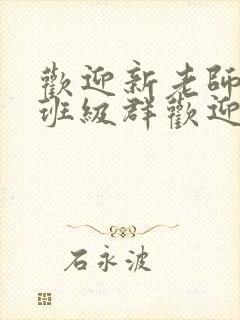 歡迎新老師
班級群歡迎
石永波